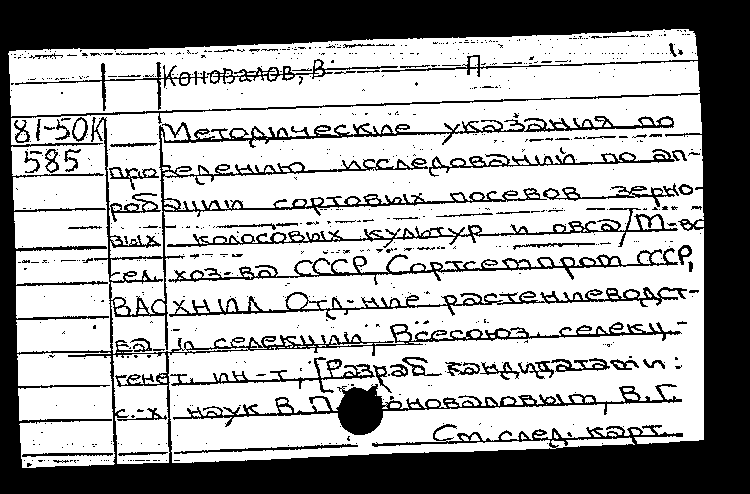 1.
Коновалов, В П
81-50К Методические указания по
585 проведению исследований по ап-
робации сортовых посевов зерно-
вых колосовых культур и овса/М-во
сел. хоз-ва СССР, Сортсемпром СССР,
ВАСХНИЛ. Отд-ние растениеводст-
ва и селекции, Всесоюз. селекц.-
генет. ин-т; [Разраб кандидатами:
с.-х. наук В.П. Коноваловым, В.Г.
См. след. карт.